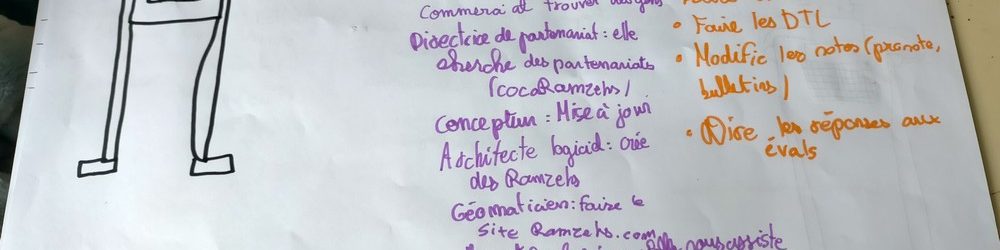 Commercial trouver des gens
Directrice de partenariat : elle
cherche des partenariats
(cocaRamzehs)
Concepteur : Mise à jour
Architecte logiciel : crée
des Ramzehs
Géomaticien : faire le
site Ramzehs.com
nous assiste
• Faire les DTL
• Modific les notes (pronote,
bulletins)
• Dire les réponses aux
évals